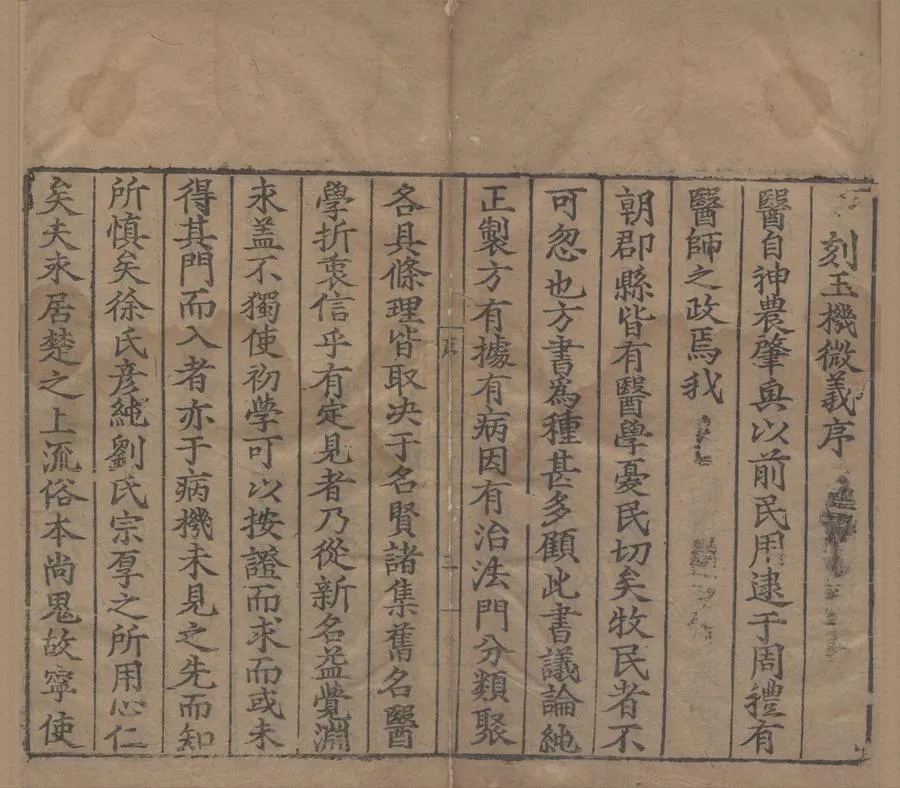 刻玉機微義序
醫自神農肇興以前民用逮于周禮有
醫師之政焉我
朝郡縣皆有醫學憂民切矣牧民者不
可忽也方書爲種甚多顧此書議論純
正製方有據有病因有治法門分類聚
序
二
各具條理皆取决于名賢諸集舊名醫
學折衷信乎有定見者乃從新名益覺淵
永盖不獨使初學可以按證而求而或未
得其門而入者亦于病機未見之先而知
所慎矣徐氏彥純劉氏宗厚之所用心仁
矣夫永居楚之上流俗本尚鬼故寧使